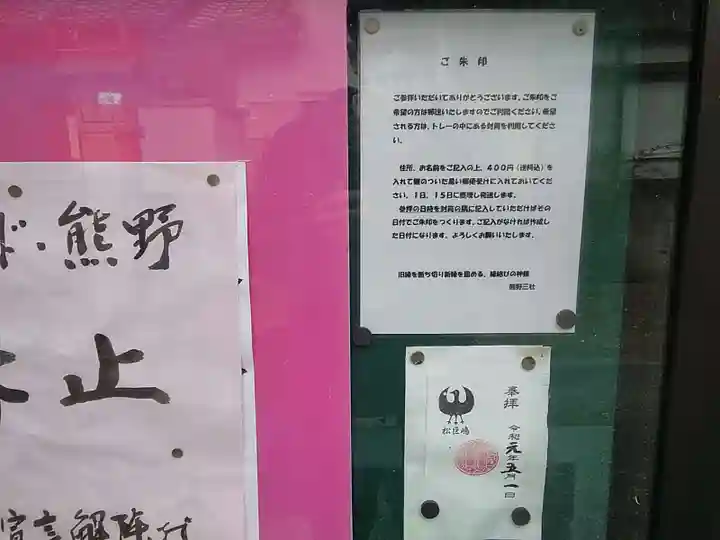 ド・熊野
止
宣言解除付
ご朱印
ご参拝いただいてありがとうございます。ご朱印をご
希望の方は郵送いたしますのでご利用ください。希望
される方は、トレーの中にある封筒を利用してくださ
い。
住所、お名前をご記入の上、400円(送料込)を
入れて鍵のついた黒い郵便受けに入れておいてくだ
さい。1日、15日に整理し発送します。
参拝の日時を封筒の隅に記入していただけばその
日付でご朱印をつくります。ご記入がなければ作成し
た日付になります。よろしくお願いいたします。
旧縁を断ち切り新縁を固める、縁結びの神様
熊野三社
奉拝
松巨嶋
令和元年五月一日